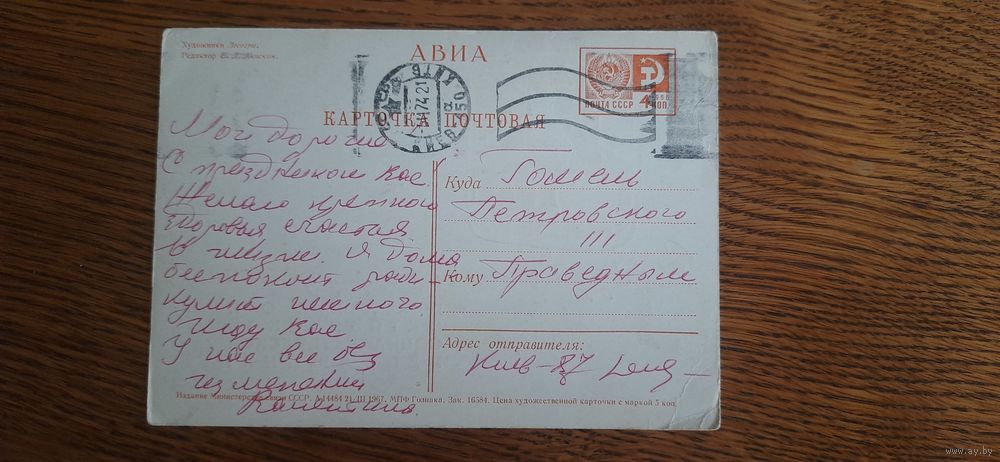 Художники
Редактор
АВИА
ПОЧТА СССР 4 КОП.
74 21
КАРТОЧКА ПОЧТОВАЯ
Мои дорогие
С праздником Вас.
Желаю крепкого
здоровья счастья
в жизни. Я дома
беспокоит ради-
кулит немного
жду Вас.
У нас все без
изменений
Валентина
Куда Гомель
Петровского
111
Кому Праведным
Адрес отправителя:
Киев-87
Издание Министерства связи СССР. А-14484 21/III 1967. МПФ Гознака. Зак. 16584. Цена художественной карточки с маркой 5 коп.
www.ay.by